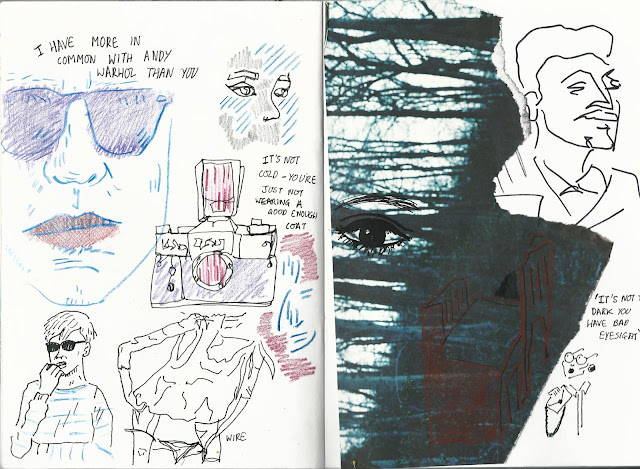 I HAVE MORE IN
COMMON WITH ANDY
WARHOL THAN YOU
IT'S NOT
COLD - YOU'RE
JUST NOT
WEARING A
GOOD ENOUGH
COAT
WIRE
'IT'S NOT
DARK YOU
HAVE BAD
EYESIGHT'